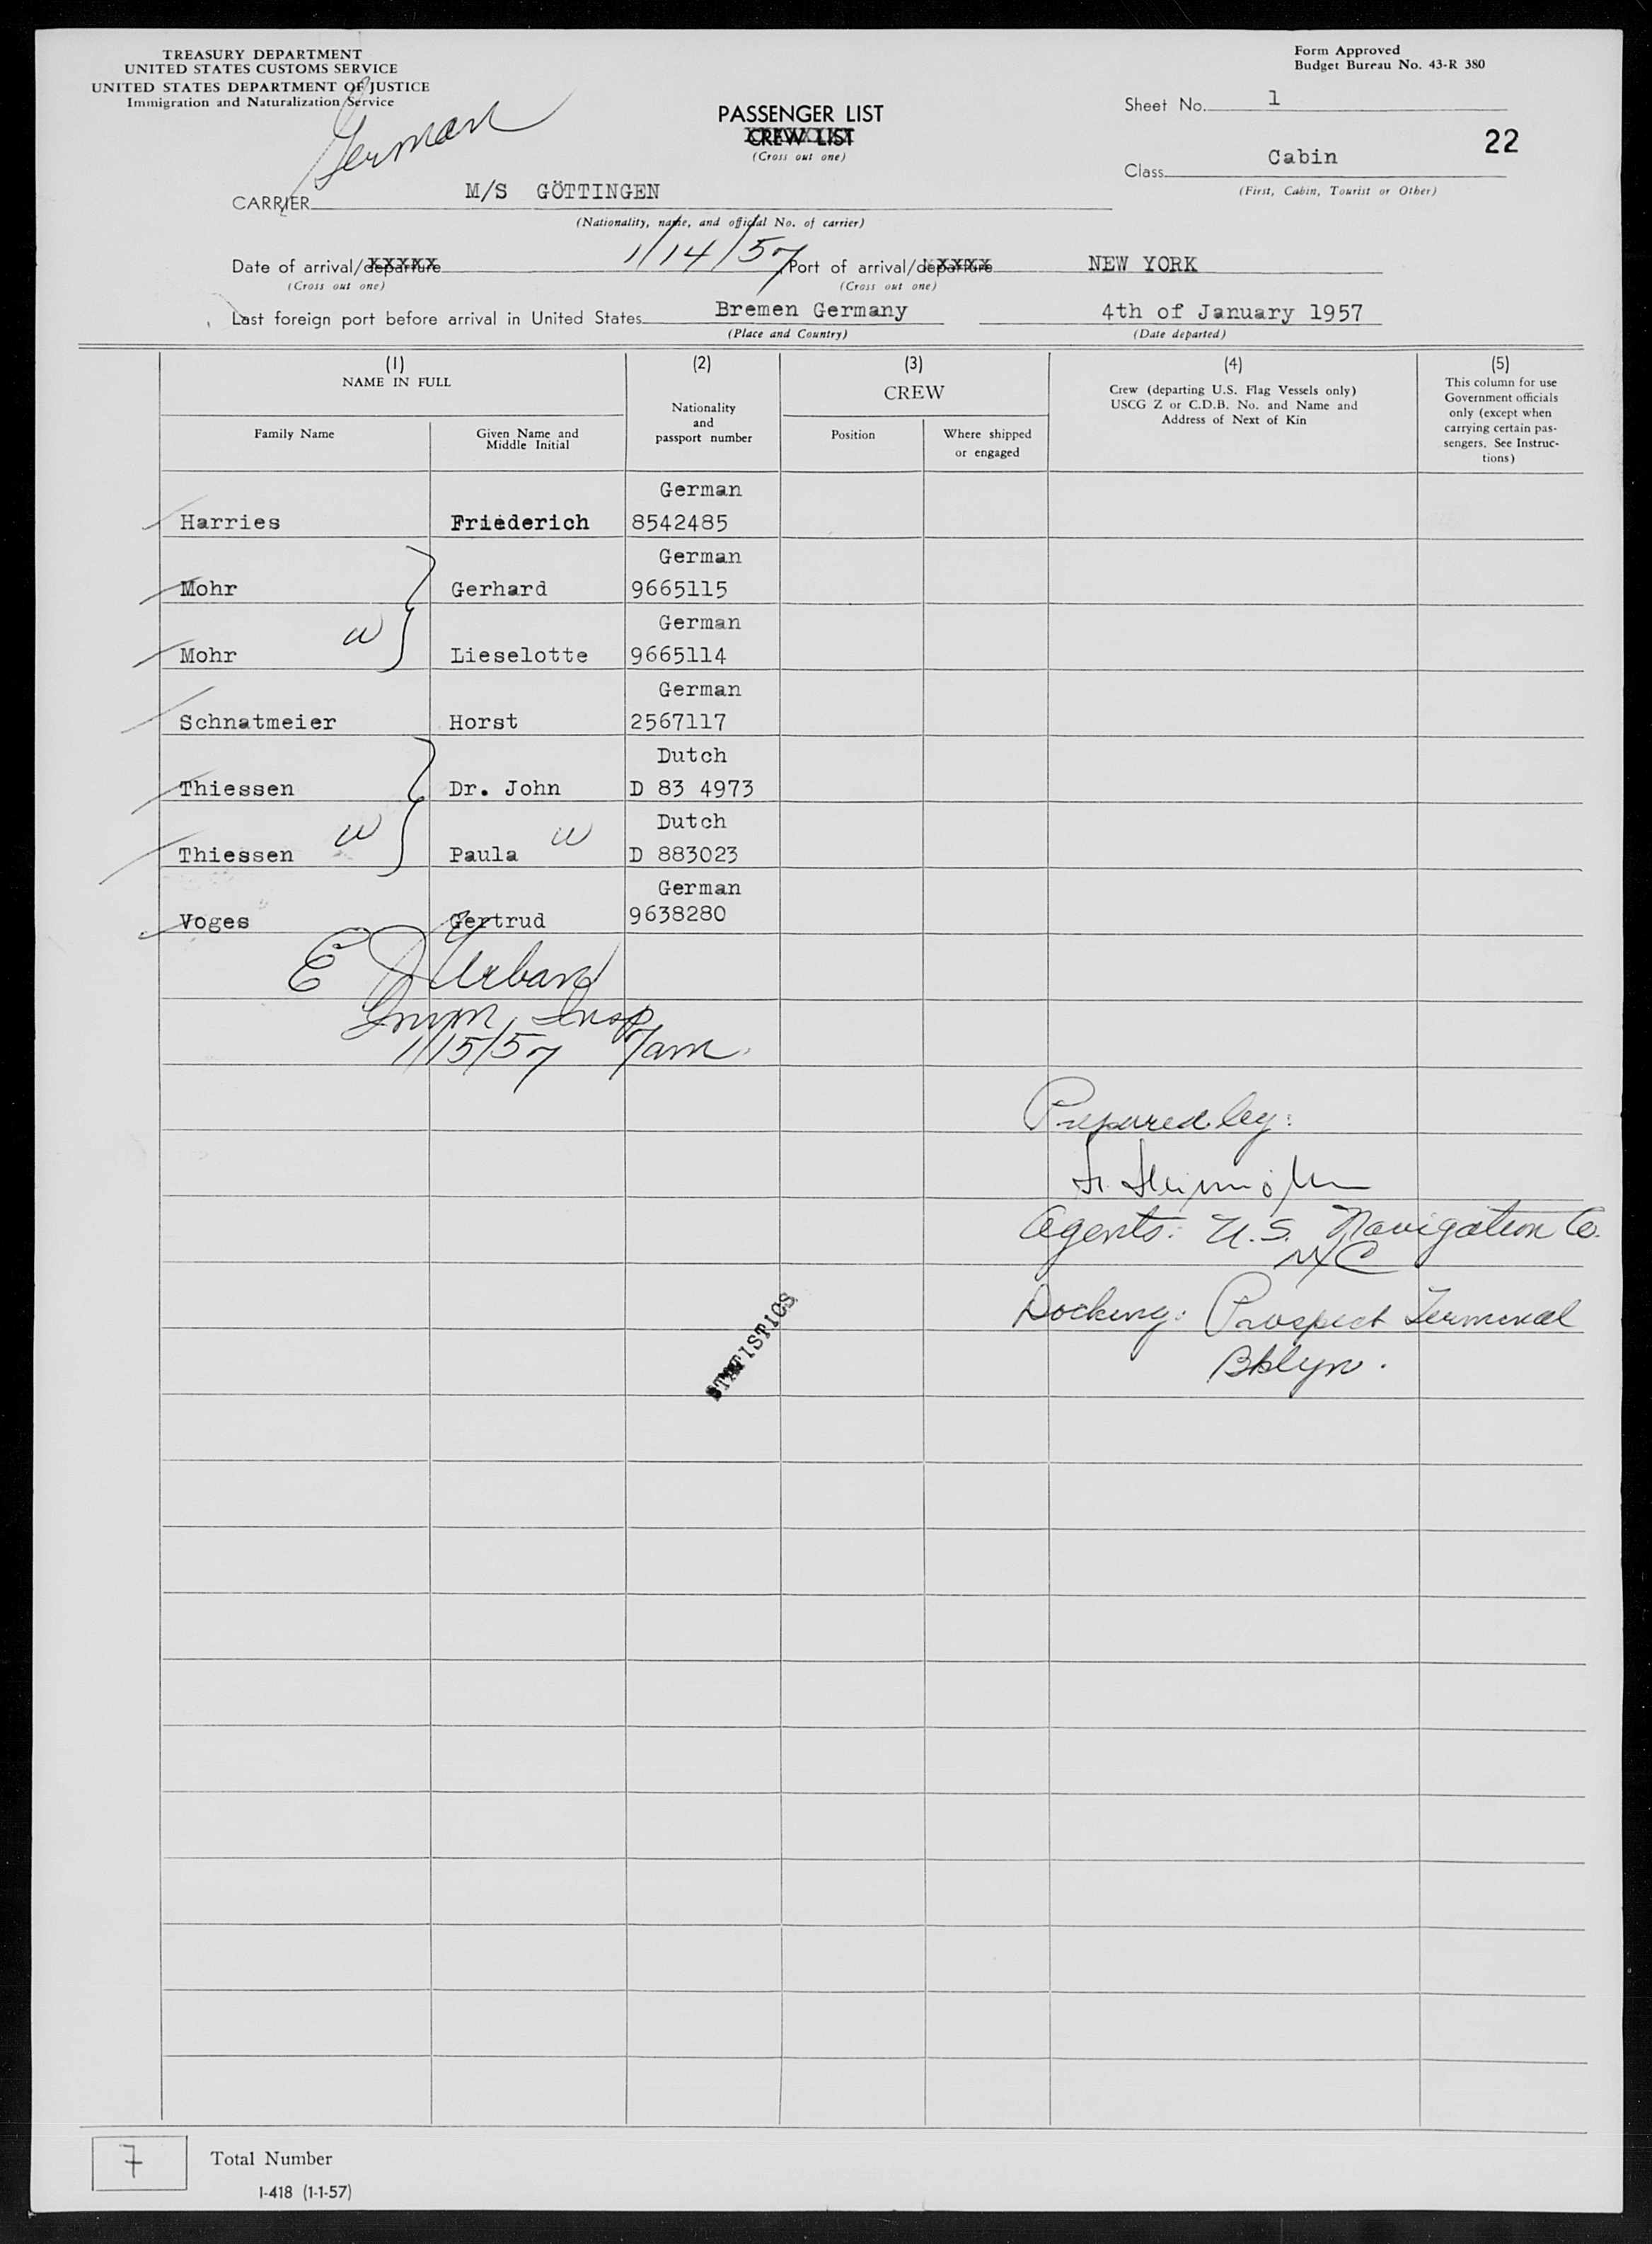 TREASURY DEPARTMENT
UNITED STATES CUSTOMS SERVICE
UNITED STATES DEPARTMENT OF JUSTICE
Immigration and Naturalization Service
Form Approved
Budget Bureau No. 43-R 380
PASSENGER LIST
CREW LIST
(Cross out one)
Sheet No. 1
22
Class Cabin
(First, Cabin, Tourist or Other)
German
CARRIER M/S GÖTTINGEN
(Nationality, name, and official No. of carrier)
Date of arrival/departure 1/14/57 Port of arrival/departure NEW YORK
(Cross out one) (Cross out one)
Last foreign port before arrival in United States Bremen Germany 4th of January 1957
(Place and Country) (Date departed)
(1) (2) (3) (4) (5)
NAME IN FULL
Family Name
Given Name and
Middle Initial
Nationality
and
passport number
CREW
Position
Where shipped
or engaged
Crew (departing U.S. Flag Vessels only)
USCG Z or C.D.B. No. and Name and
Address of Next of Kin
This column for use
Government officials
only (except when
carrying certain pas-
sengers. See Instruc-
tions)
German
Harries Friederich 8542485
German
Mohr Gerhard 9665115
German
Mohr W Lieselotte 9665114
German
Schnatmeier Horst 2567117
Dutch
Thiessen Dr. John D 83 4973
Dutch
Thiessen W Paula W D 883023
German
Voges Gertrud 9638280
E J Urban
Imm Insp
1/15/57 7/am.
Prepared by:
Agents: U.S. Navigation Co.
NYC
Docking: Prospect Terminal
Bklyn.
STATISTICS
7 Total Number
I-418 (1-1-57)